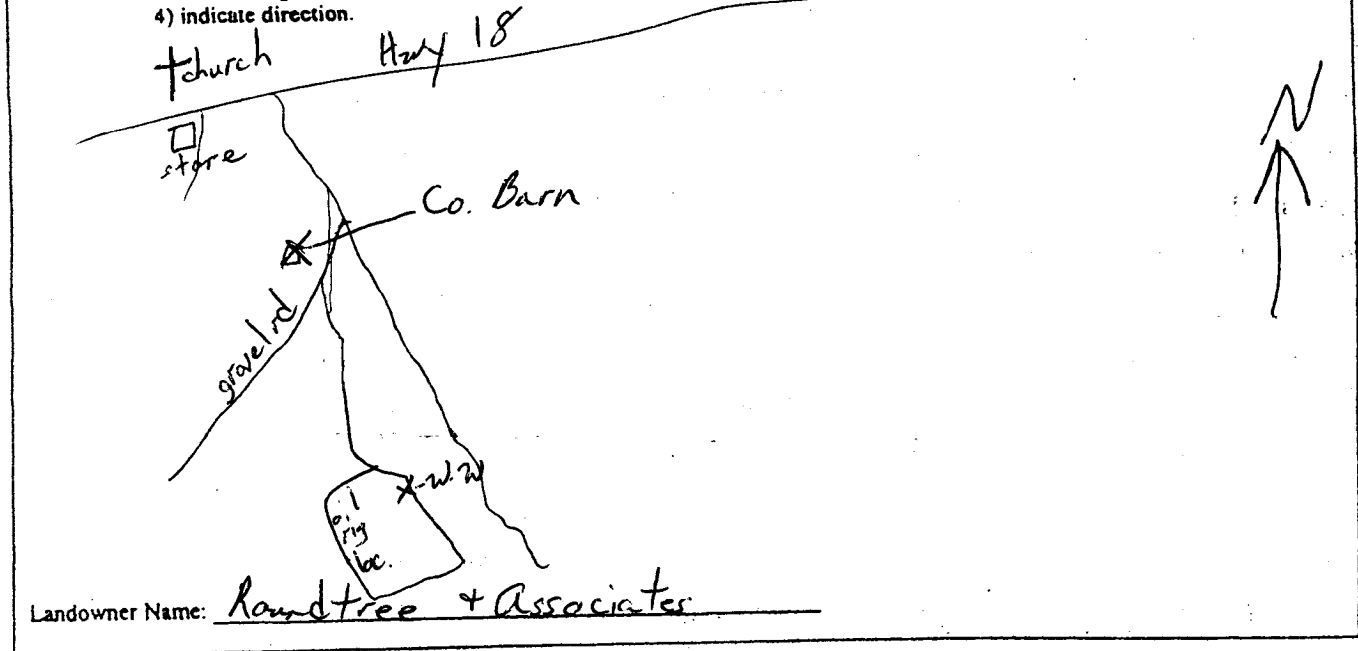 4) indicate direction.
†church
Hwy 18
N
store
Co. Barn
gravel rd
X-W.W
oil
rig
loc.
Landowner Name: Roundtree + Associates